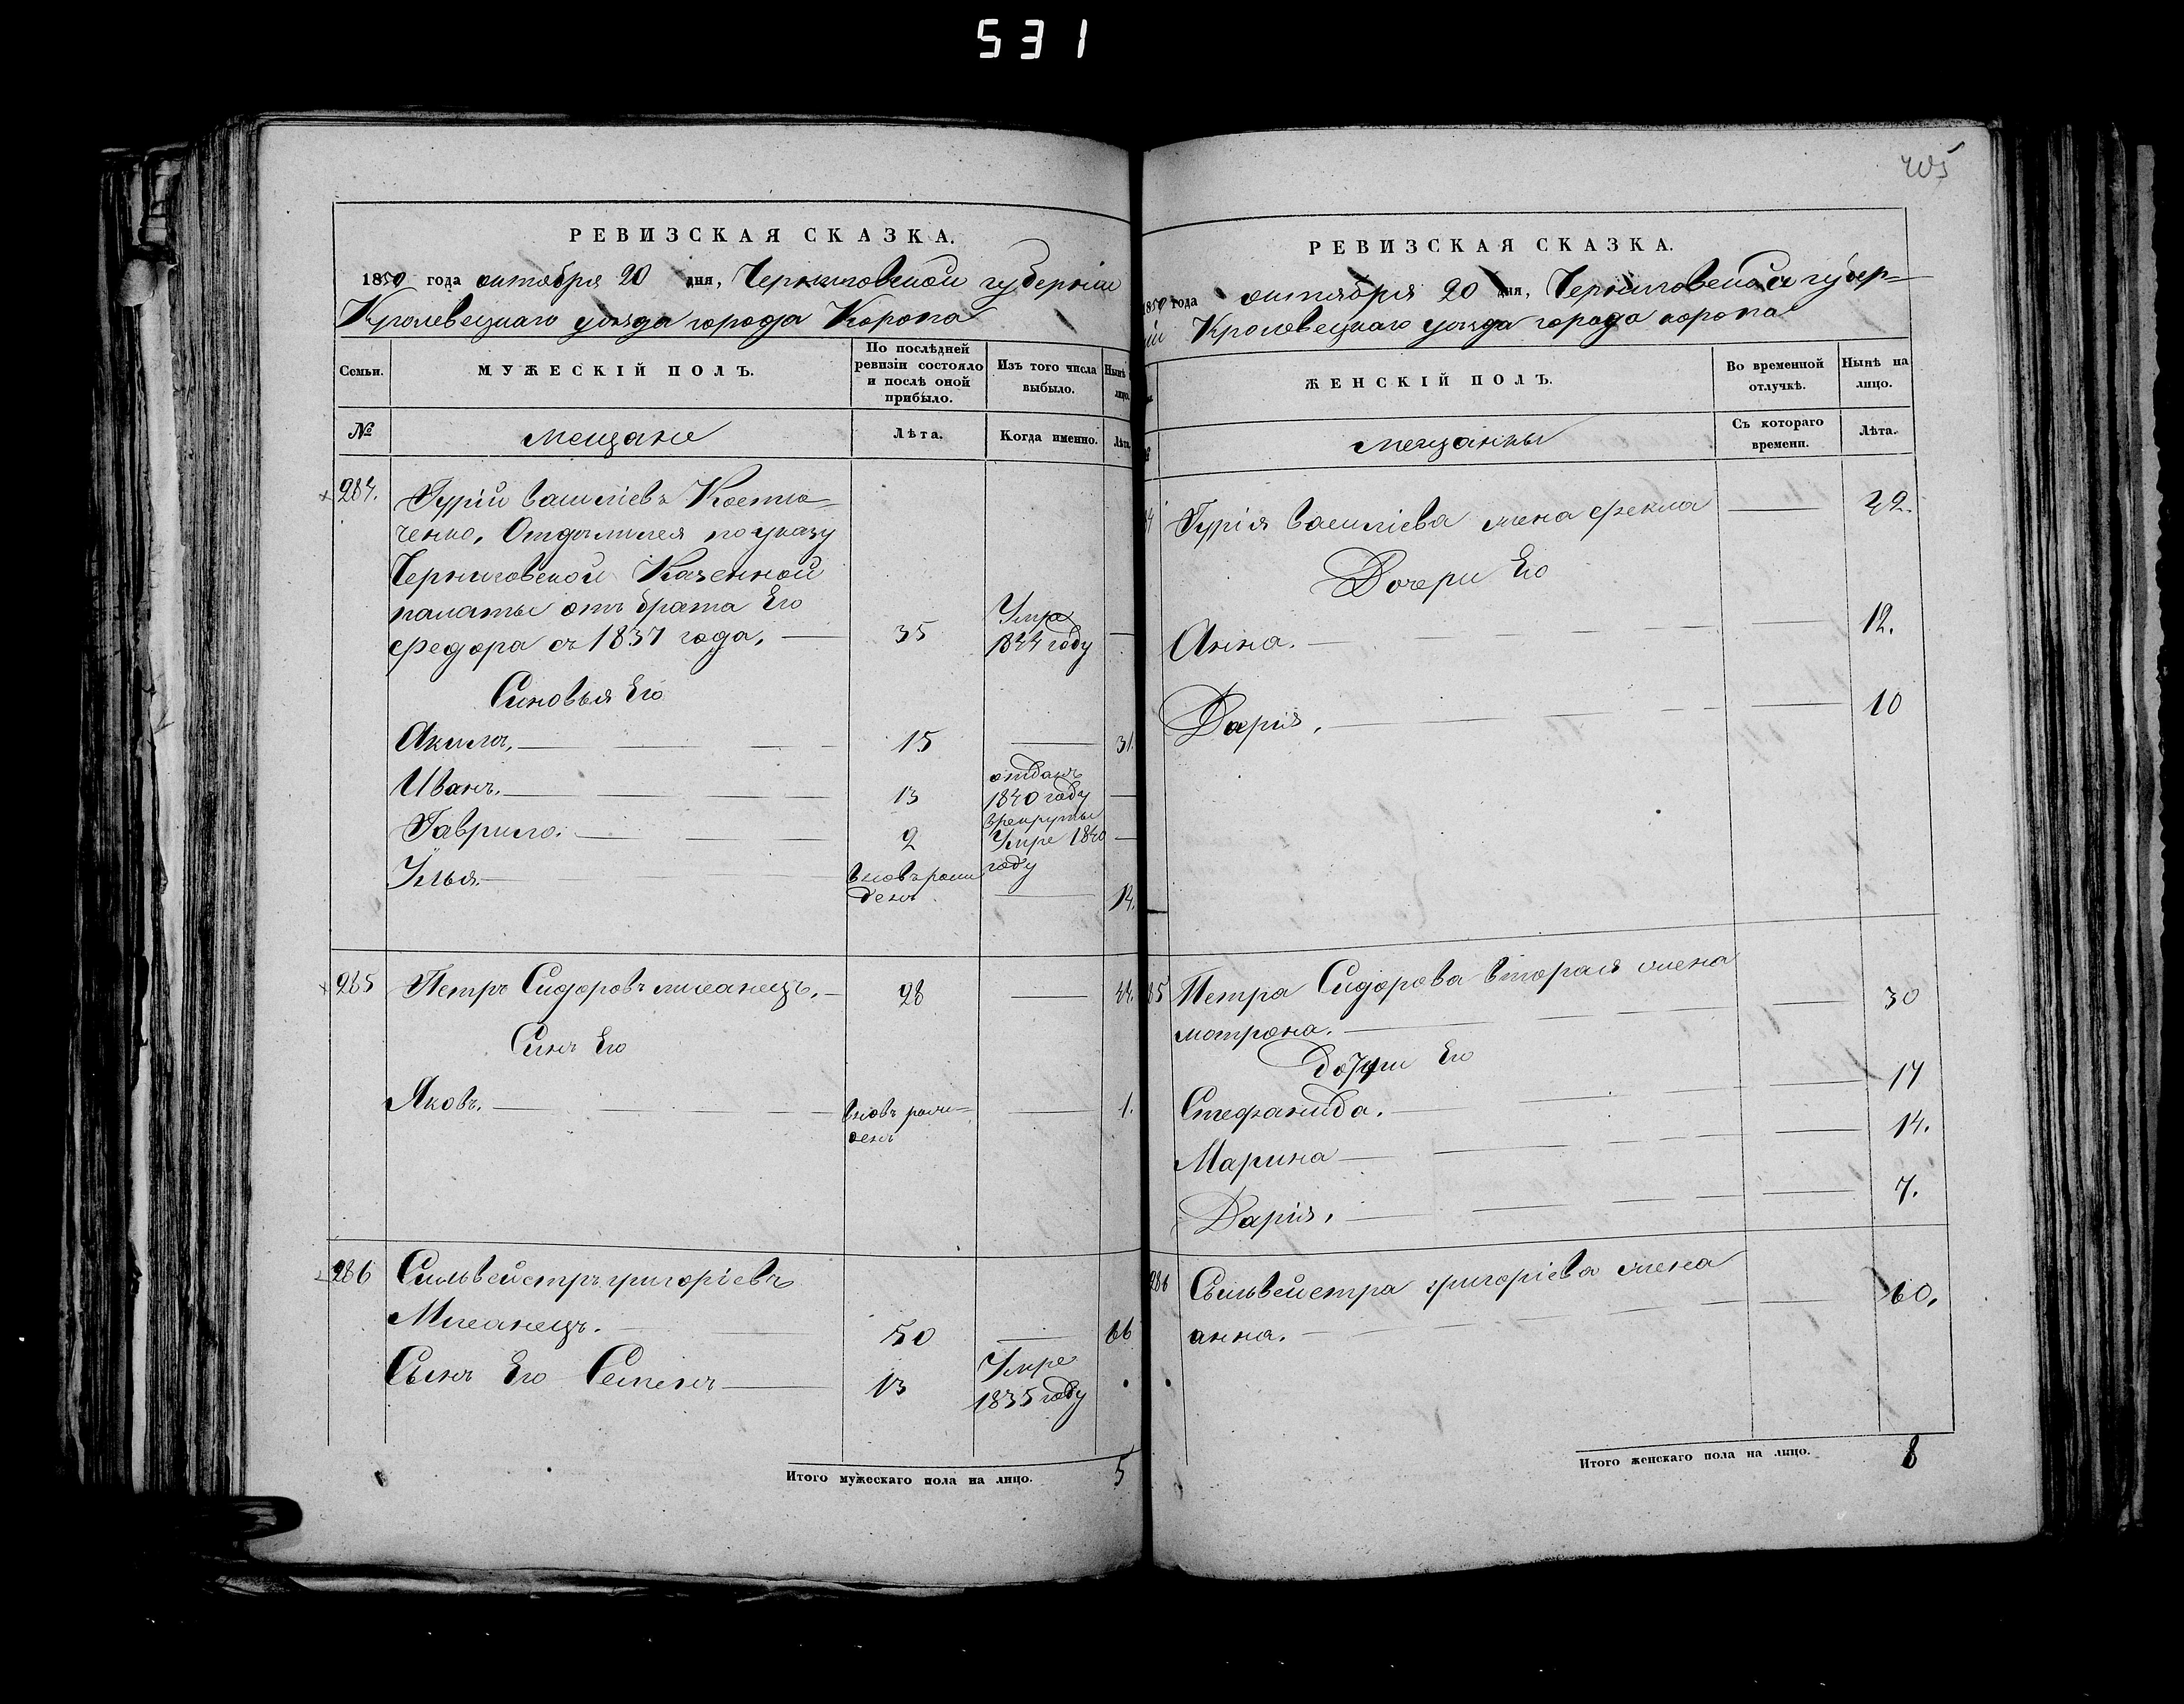 531
РЕВИЗСКАЯ СКАЗКА.
1850 года октября 20 дня, Черниговской губерніи
Кролевецкаго уѣзда города Коропа
Семьи.
МУЖЕСКІЙ ПОЛЪ.
По послѣдней ревизіи состояло и послѣ оной прибыло.
Изъ того числа выбыло.
Нынѣ лицо.
№
мещане
Лѣта.
Когда именно.
Лѣта.
284. Гурій Василіевъ Костю-
ченко, Отдѣлился по указу
Черниговской Казенной
палаты отъ брата Его
Федора съ 1837 года. 35 Умре 1844 году
Синовья Его
Акимъ. 15 31.
Иванъ. 13 отданъ 1840 году врекруты
Гаврило. 2 Умре 1840 году
Илья. вновь рожденъ 14.
285 Петръ Сидоровъ мисанецъ. 28 44.
Синъ Его
Яковъ. вновь рожденъ 1.
286 Сильвейстръ григоріевъ
Мисанецъ. 50 66
Сынъ Его Семенъ 13 Умре 1835 году
Итого мужескаго пола на лицо. 5
405
РЕВИЗСКАЯ СКАЗКА.
1850 года октября 20 дня, Черниговской губер-
ніи Кролевецкаго уѣзда города коропа
ЖЕНСКІЙ ПОЛЪ.
Во временной отлучкѣ.
Нынѣ на лицо.
мещанки
Съ котораго времени.
Лѣта.
Гурія Василіева жена Фекла 42.
Дочери Его
Анна. 12.
Дарія. 10
85 Петра Сидорова вторая жена 30
мотрона.
дочери Его
Стефанида. 17
Марина 14.
Дарія. 7.
286 Сильвейстра григоріева жена 60.
анна.
Итого женскаго пола на лицо. 8